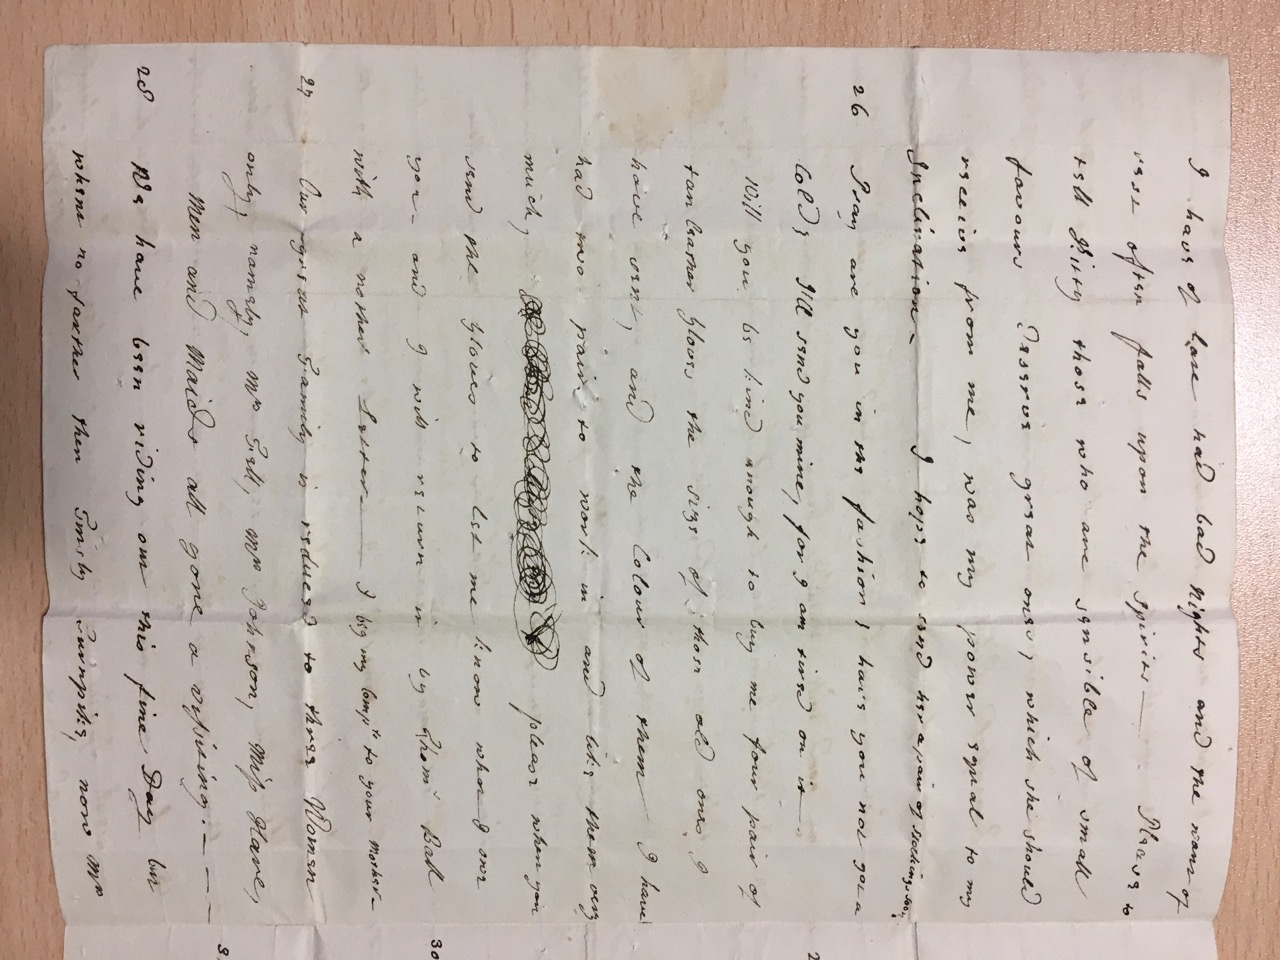 I have of late had bad Nights and the want of
rest often falls upon the Spirits — Please to
tell Kitty those who are sensible of small
favours Deserve great ones, which she should
receive from me, was my power equal to my
Inclination — I hope to send her a pair of Stockings soon,
26 Pray are you in the fashion, have you not got a
Cold, I'll send you mine, for I am tired on it —
Will you be kind enough to buy me four pair of
tan leather Gloves the size of those old ones I
have sent, and the Colour of them — I have
had two pair to work in and like them very
much, please when you
send the Gloves to let me know what I owe
you — and I will return it by Thoms Ball
with a nother Letter — I beg my Compts to your Mother —
27 Our great Family is reduced to three Women
only, namely, Mrs Gell, Mrs Johnson, Miss Have,
Men and Maids all gone a visiting. — — —
28 We have been riding out this fine Day but
went no farther then Turnpike, now Mrs
30
2